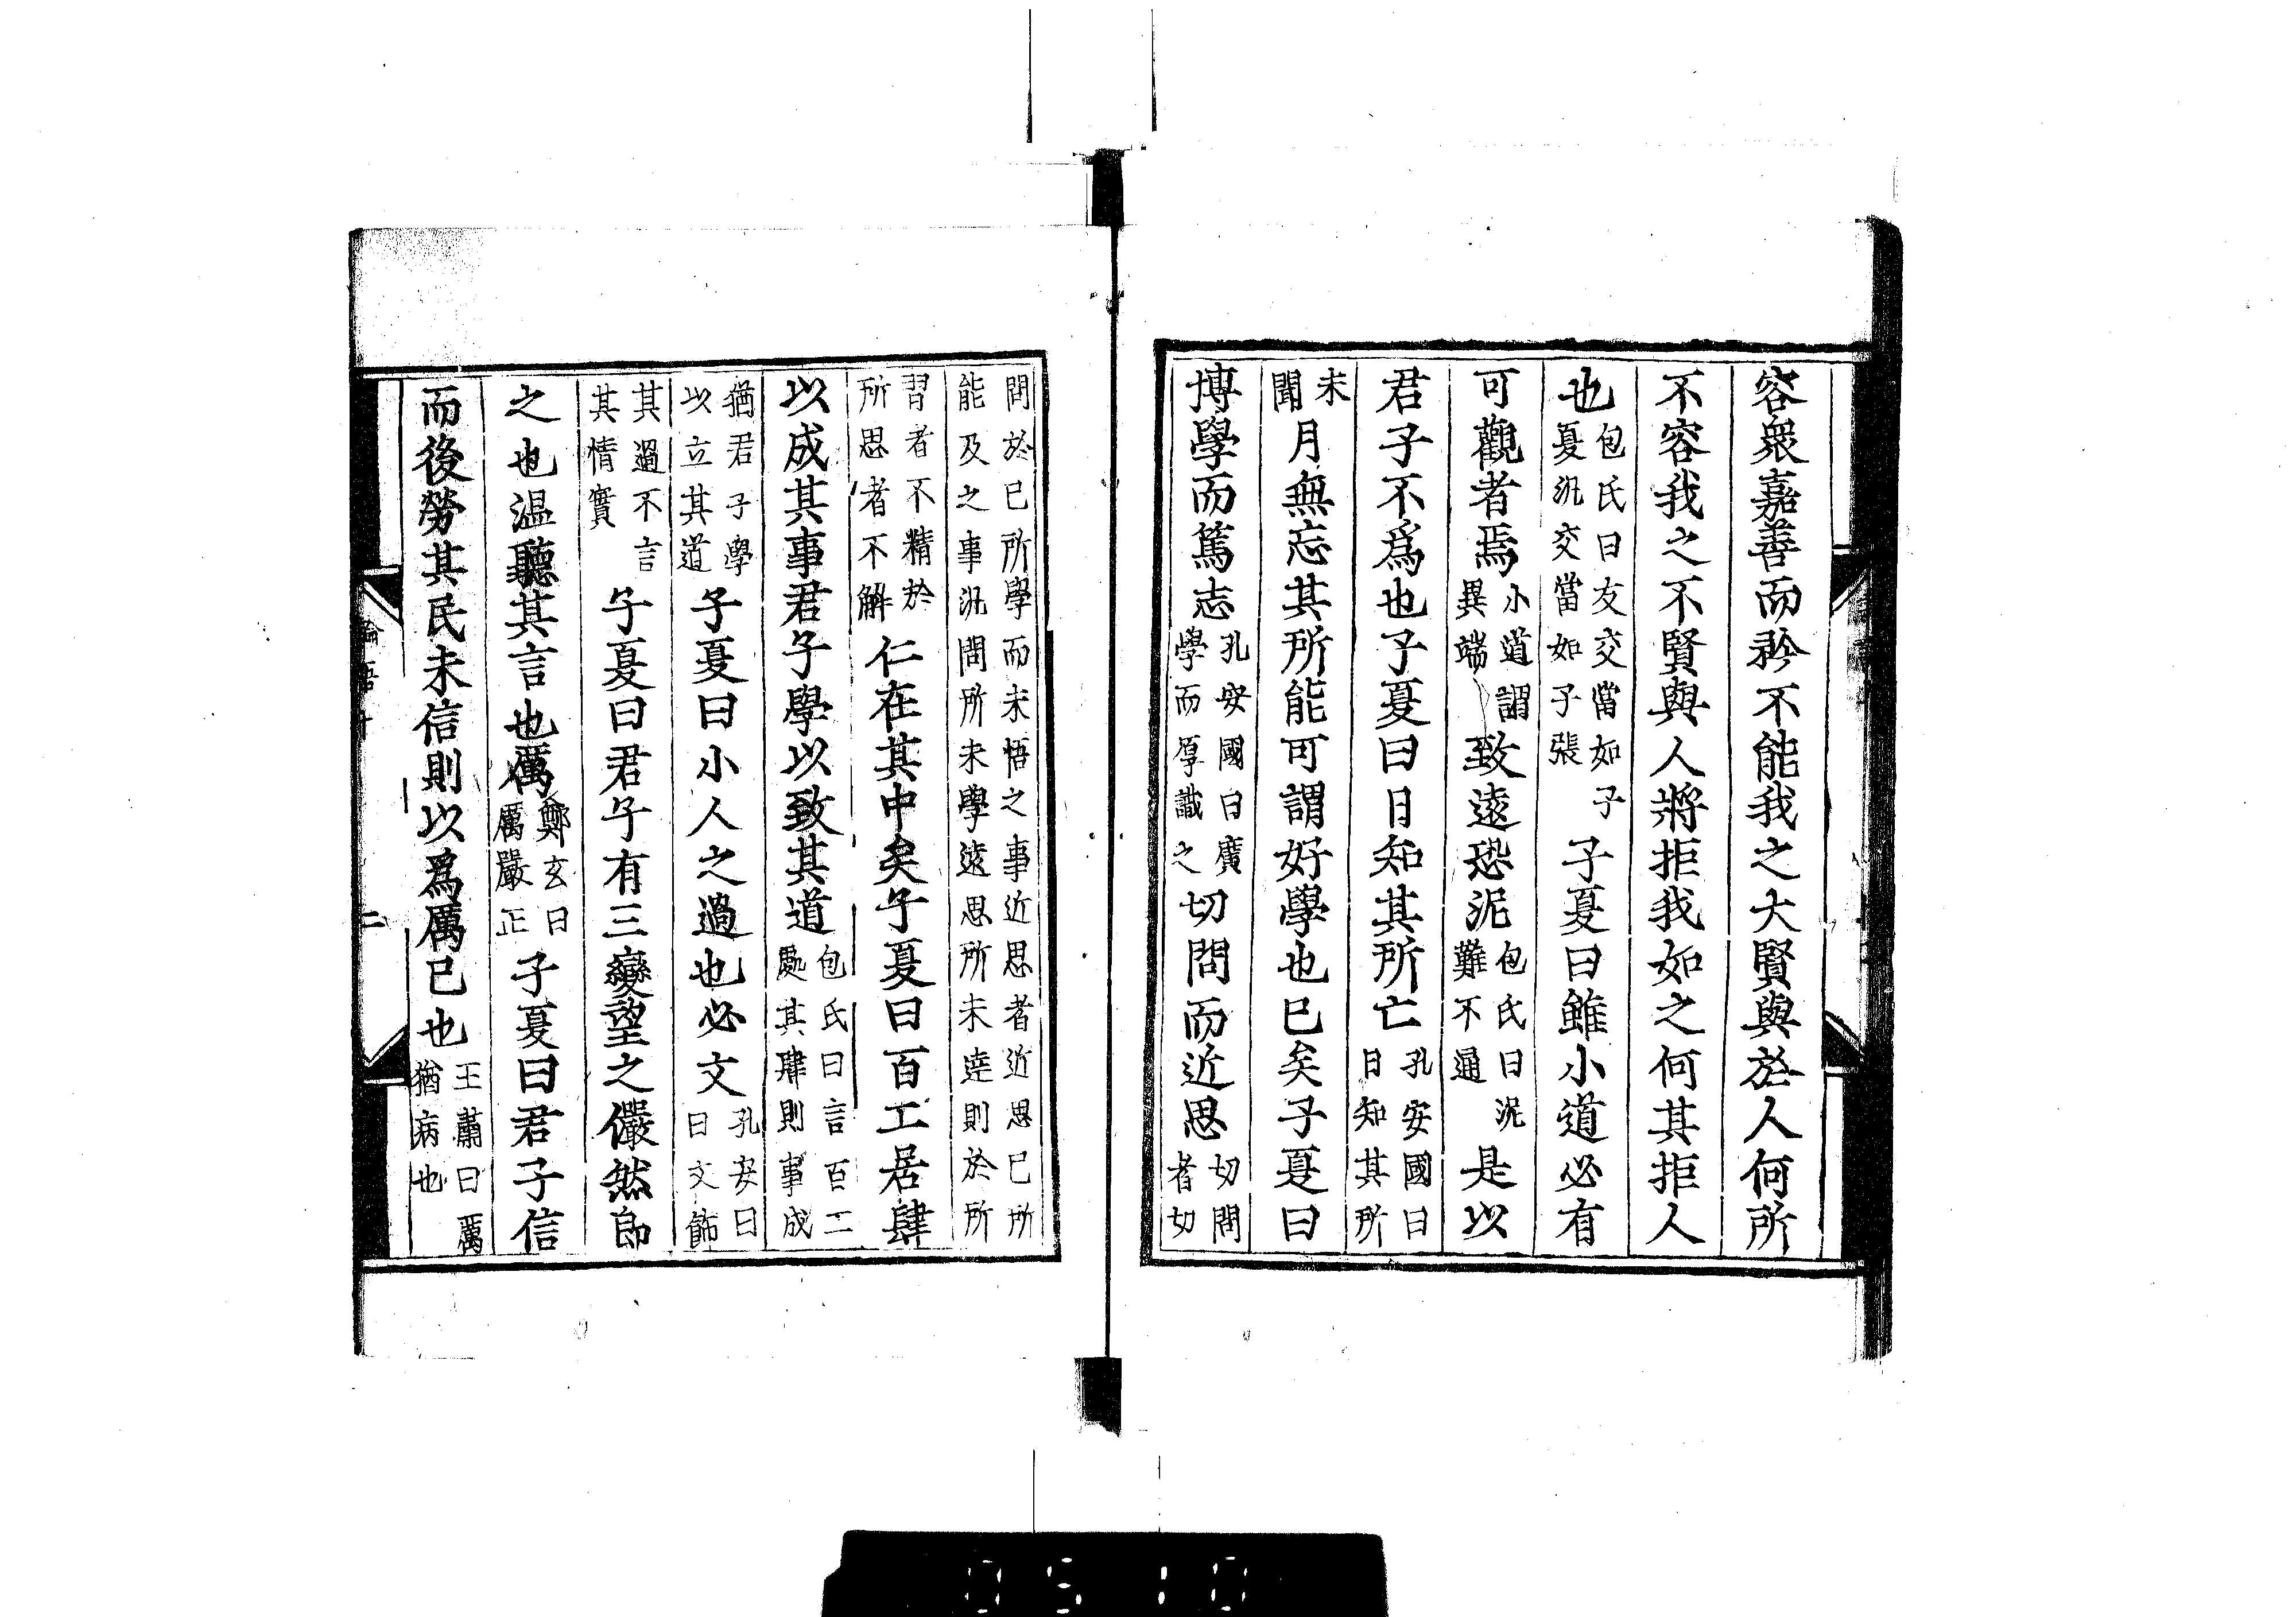 容衆嘉善而矜不能我之大賢與於人何所
不容我之不賢與人將拒我如之何其拒人
也包氏曰友交當如子夏汎交當如子張子夏曰雖小道必有
可觀者焉小道謂異端致遠恐泥包氏曰泥難不通是以
君子不爲也子夏曰日知其所亡孔安國曰日知其所
未聞月無忘其所能可謂好學也已矣子夏曰
博學而篤志孔安國曰廣學而厚識之切問而近思切問者切
問於已所學而未悟之事近思者近思已所能及之事汎問所未學遠思所未達則於所
習者不精於所思者不解仁在其中矣子夏曰百工居肆
以成其事君子學以致其道包氏曰言百工處其肆則事成
猶君子學以立其道子夏曰小人之過也必文孔安曰曰文飾
其過不言其情實子夏曰君子有三變望之儼然即
之也温聽其言也厲鄭玄曰厲嚴正子夏曰君子信
而後勞其民未信則以爲厲已也王肅曰厲猶病也
論語十
二
0510